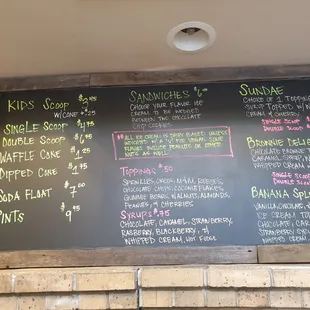 KIDS SCOOP $3
W/CONE + .25
SINGLE SCOOP $4.75
DOUBLE SCOOP
WAFFLE CONE
DIPPED CONE
SODA FLOAT $7.00
PINTS $9
SANDWICHES
CHOOSE YOUR FLAVOR ICE
CREAM TO BE WEDGED
BETWEEN TWO CHOCOLATE
CHIP COOKIES
ALL ICE CREAM IS DAIRY BASED UNLESS
NUTS AS WELL
TOPPINGS $.50
SPRINKLES, OREOS, M&MS, REESE'S,
CHOCOLATE CHIPS, COCONUT FLAKES,
GUMMIE BEARS, WALNUTS, ALMONDS,
PEANUTS, & CHERRIES
SYRUPS $.75
CHOCOLATE, CARAMEL, STRAWBERRY,
RASBERRY, BLACKBERRY, &
WHIPPED CREAM, HOT FUDGE
SUNDAE
CHOICE OF 1 TOPPING
SYRUP TOPPED W/
CREAM & CHERRY
SINGLE SCOOP
DOUBLE SCOOP
BROWNIE
CHOCOLATE BROWNIE
CARAMEL SYRUP
WHIPPED CREAM
SINGLE SCOOP
DOUBLE SCOOP
BANANA
VANILLA
ICE CREAM
CHOCOLATE
CARAMEL
WHIPPED CREAM